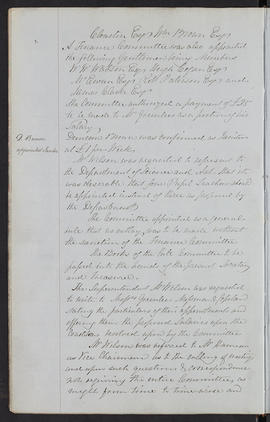 Clouston Esqr Wm Brown Esqr
A Finance Committee was also appointed
the following Gentlemen being Members
W. W. Watson Esqr Hugh Cogan Esqr
McEwan Esqr Robt Paterson Esqr and
James Clark Esqr
The Committee authorized a payment of £25
to be made to Mr Greenlees as a portion of his
Salary
D. Brown
appointed Janitor
Duncan Brown was confirmed as Janitor
at £1 per Week.
Mr Wilson was requested to represent to
the Department of Science and Art that it
was desirable that four Pupil Teachers should
be appointed instead of three as proposed by
the Department.
The Committee appointed as a general
rule that no outlay was to be made without
the sanction of the Finance Committee
The Books of the late Committee to be
passed into the hands of the present Secretary
and Treasurer.
The Superintendent Mr Wilson was requested
to write to Messrs Greenlees Mossman & Copland
stating the particulars of their appointments and
offering them the proposed salaries upon the
conditions resolved upon by the Committee
Mr Wilson was referred to Mr Hannan
as Vice Chairman as to the calling of meetings
and upon such questions & correspondence
not requiring the entire Committee as
might from time to time arise and